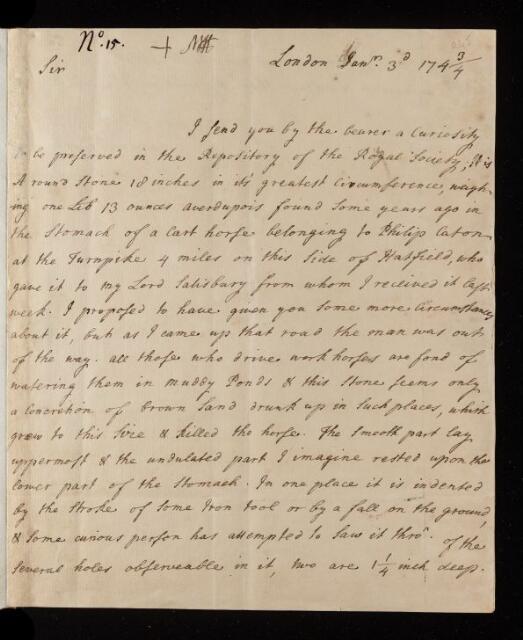 No. 15. +
London Janry. 3d 174 3/4
Sir
I send you by the bearer a Curiosity
to be preserved in the Repository of the Royal Society; It is
A round Stone 18 inches in it's greatest Circumference, waygh-
ing one Lib 13 ounces averdupois found some years ago in
the Stomach of a Cart horse belonging to Philip Caton
at the Turnpike 4 miles on this side of Hatfield, who
gave it to my Lord Salisbury from whom I recieved it last
week. I proposed to have given you some more Circumstances
about it, but as I came up that road the man was out
of the way. all those who drive work horses are fond of
watering them in muddy Ponds & this Stone seems only
a Concretion of brown Sand drunk up in such places, which
grew to this Size & killed the horse. The smooth part lay
uppermost & the undulated part I imagine rested upon the
lower part of the Stomach. In one place it is indented
by the Stroke of some Iron tool or by a fall on the ground,
& some curious person has attempted to saw it thro'. of the
several holes observeable in it, two are 1 1/4 inch deep.